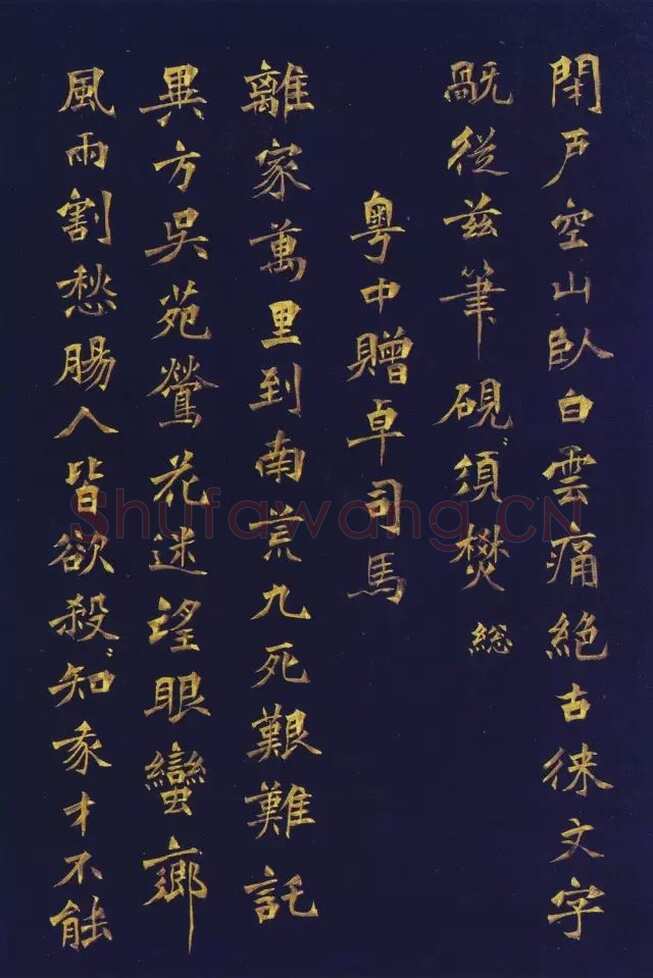 閇戶空山臥白雲痛絕古徠文字
旤從茲筆硯須燓 総
粵中贈卓司馬
離家萬里到南荒九死艱難託
異方吳苑鶯花迷望眼蠻鄉
風雨割愁腸人皆欲殺知才不能
Shufawang.CN